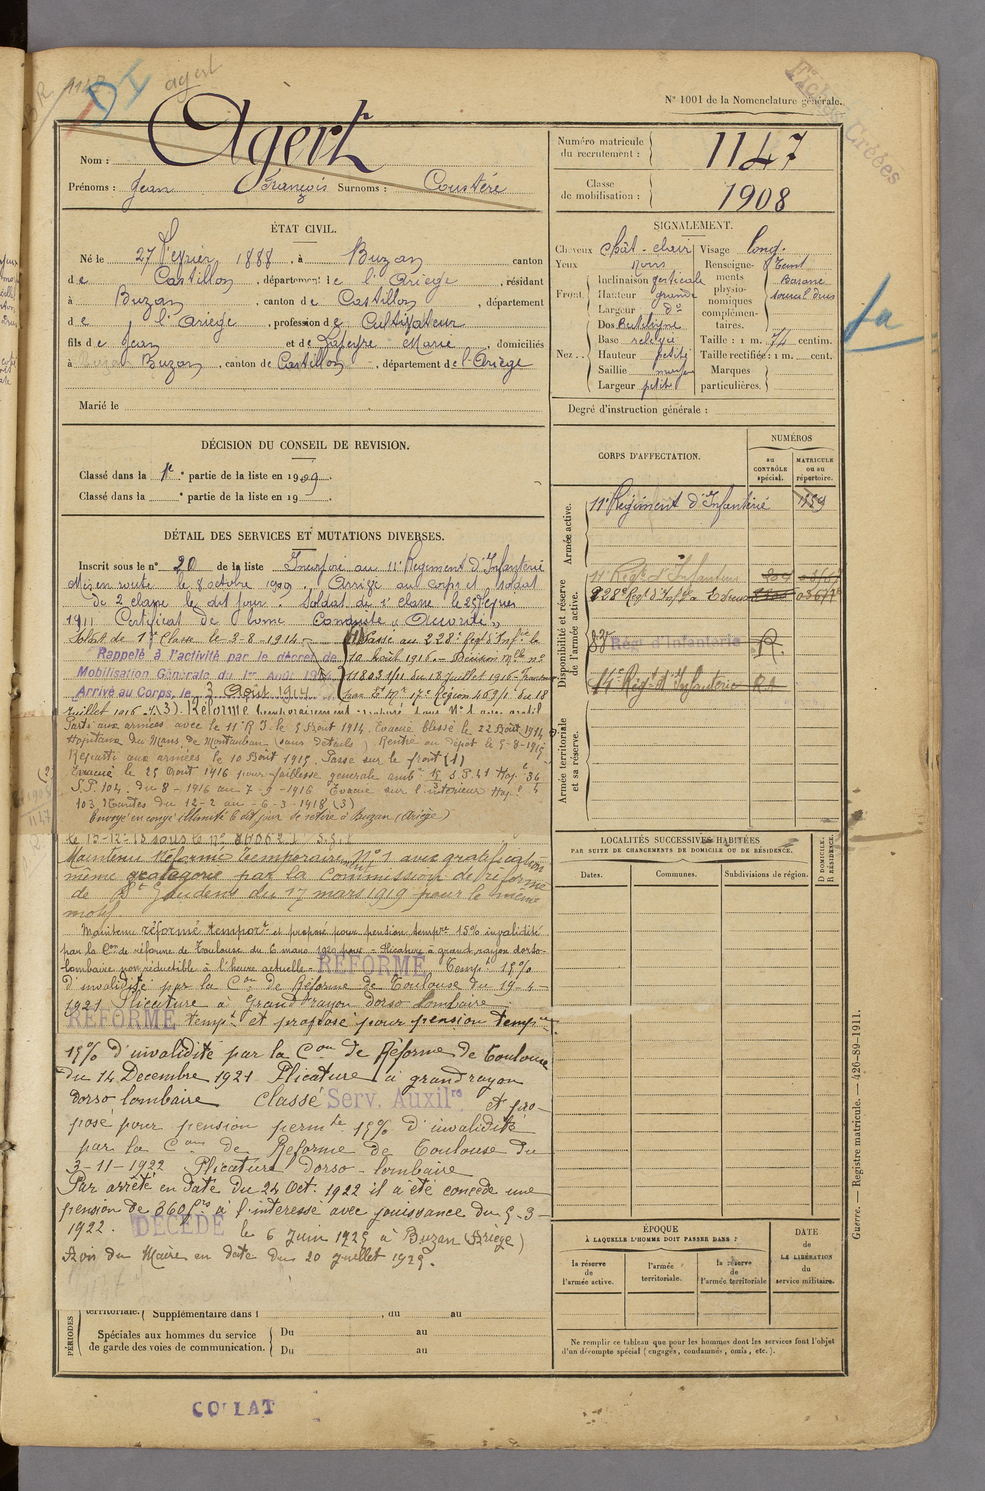 1147
agert
N° 1001 de la Nomenclature générale.
Fiches Créées
Nom : Agert
Prénoms : Jean François Surnoms : Coustère
Numéro matricule du recrutement : 1147
Classe de mobilisation : 1908
ÉTAT CIVIL.
Né le 27 Février 1888, à Buzan, canton
de Castillon, département de l'Ariège, résidant
à Buzan, canton de Castillon, département
de l'Ariège, profession de Cultivateur
fils de Jean et de Lafeyre Marie, domiciliés
à Buzan, canton de Castillon, département de l'Ariège
Marié le
SIGNALEMENT.
Cheveux chât. clair
Yeux noirs
Front Inclinaison verticale
Hauteur grande
Largeur do
Nez Dos Rectiligne
Base relevé
Hauteur petite
Saillie moyen
Largeur petite
Visage long.
Renseignements physionomiques complémentaires. Teint Basané
Taille : 1 m. 74 centim.
Taille rectifiée : 1 m. cent.
Marques particulières.
Degré d'instruction générale :
DÉCISION DU CONSEIL DE REVISION.
Classé dans la 1re partie de la liste en 1909.
Classé dans la e partie de la liste en 19
DÉTAIL DES SERVICES ET MUTATIONS DIVERSES.
Inscrit sous le n° 20 de la liste Incorporé au 11e Régiment d'Infanterie
Mis en route le 8 octobre 1909. Arrivé au corps et soldat
de 2e classe le dit jour. Soldat de 1e classe le 25 Février
1911 Certificat de bonne Conduite « Accordé »
Soldat de 1e Classe le 2-8-1914
Rappelé à l'activité par le décret de
Mobilisation Générale du 1er Août 1914
Arrivé au Corps, le 3 Août 1914
(1) Passé au 228e Regt d'Infrie le
10 Août 1916. Décision Mlle n°
11803 1/11 du 18 Juillet 1916
juillet 1916
(3) Réformé temporairement
Parti aux armées avec le 11e R.I. le 5 Août 1914. Evacué blessé le 22 Août 1914
Hopitaux du Mans, de Montauban (sans détails) Rentré au dépôt le 5-8-1915
Reparti aux armées le 10 Août 1915. Passé sur le front (1)
Evacué le 25 Août 1916 pour faiblesse générale
S.P. 104. du 8-1916 au 7-9-1916 Evacué sur l'intérieur
103 Nantes du 12-2 au 6-3-1918 (3)
Envoyé en congé illimité le dit jour se retire à Buzan (Ariège)
Maintenu Réformé Temporaire N° 1 avec gratification
même catégorie par la Commission de réforme
de St Gaudens du 17 mars 1919 pour le même
motif
Maintenu réformé temport et proposé pour pension tempre 15% invalidité
par la Con de réforme de Toulouse du 6 mars 1920 pour - Plicature à grand rayon dorso-
lombaire non réductible à l'heure actuelle. RÉFORMÉ Tempt 15%
d'invalidité par la Con de Réforme de Toulouse du 19-4-
1921 Plicature à Grand rayon dorso lombaire
RÉFORMÉ tempt et proposé pour pension temp
15% d'invalidité par la Con de Réforme de Toulouse
du 14 Decembre 1921 Plicature à grand rayon
dorso lombaire classé Serv. Auxilre et pro-
posé pour pension permte 15% d'invalidité
par la Con de Réforme de Toulouse du
3-11-1922 Plicature dorso-lombaire
Par arrêté en date du 24 Oct. 1922 il a été concédé une
pension de 360 frs à l'intéressé avec jouissance du 5-3-
1922. DÉCÉDÉ le 6 Juin 1925 à Buzan (Ariège)
Avis du Maire en date du 20 Juillet 1925.
territoriale. Supplémentaire dans l , du au
PÉRIODES
Spéciales aux hommes du service de garde des voies de communication.
Du au
Du au
CORPS D'AFFECTATION.
NUMÉROS
au CONTRÔLE spécial.
MATRICULE ou au répertoire.
Armée active.
11e Régiment d'Infanterie 1159
Disponibilité et réserve de l'armée active.
11e Regt d'Infanterie
228e Regt d'Infie
83e Rég. d'Infanterie R.
14e Regt d'Infanterie
Armée territoriale et sa réserve.
LOCALITÉS SUCCESSIVES HABITÉES
PAR SUITE DE CHANGEMENTS DE DOMICILE OU DE RÉSIDENCE.
Dates.
Communes.
Subdivisions de région.
D DOMICILE. R RÉSIDENCE.
ÉPOQUE
À LAQUELLE L'HOMME DOIT PASSER DANS :
la réserve de l'armée active.
l'armée territoriale.
la réserve de l'armée territoriale
DATE de LA LIBÉRATION du service militaire.
Ne remplir ce tableau que pour les hommes dont les services font l'objet
d'un décompte spécial (engagés, condamnés, omis, etc.).
Guerre. — Registre matricule. — 426-89-1911.